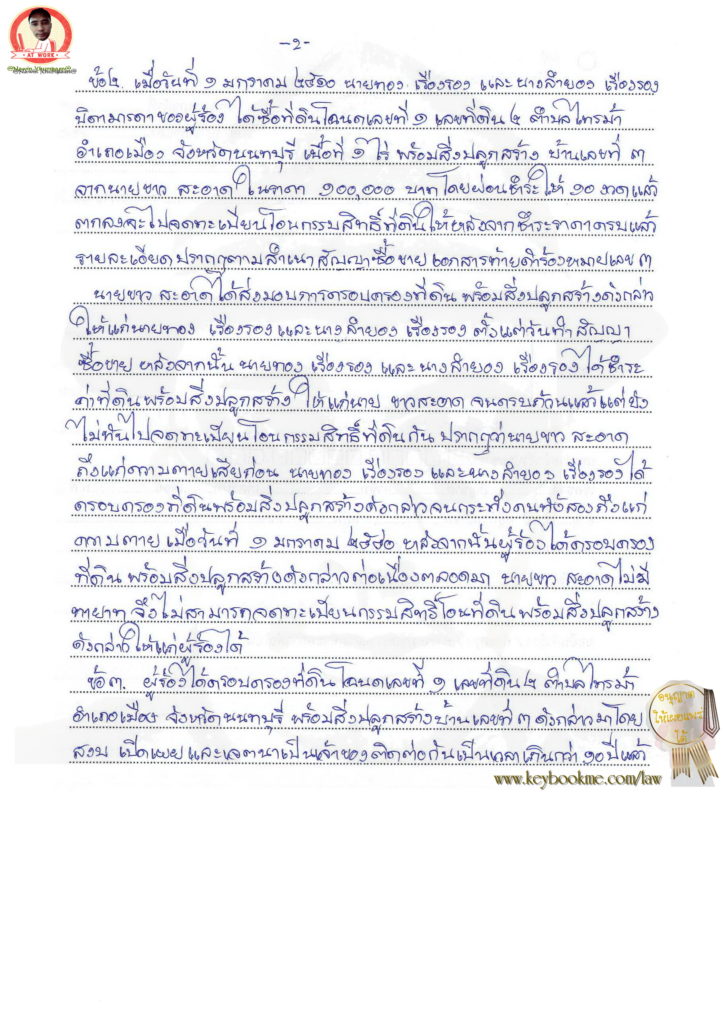 AT WORK
-2-
ข้อ๒. เมื่อวันที่ ๑ มกราคม ๒๕๑๐ นายทอง เรืองรอง และนางสำยอง เรืองรอง
บิดามารดาของผู้ร้อง ได้ซื้อที่ดินโฉนดเลขที่ ๑ เลขที่ดิน ๒ ตำบลไทรม้า
อำเภอเมือง จังหวัดนนทบุรี เนื้อที่ ๑ ไร่ พร้อมสิ่งปลูกสร้าง บ้านเลขที่ ๓
จากนายขาว สะอาด ในราคา ๑๐๐,๐๐๐ บาทโดยผ่อนชำระให้ ๑๐ งวดแล้ว
ตกลงจะไปจดทะเบียนโอนกรรมสิทธิ์ที่ดินให้หลังจากชำระราคาครบแล้ว
รายละเอียดปรากฏตามสำเนาสัญญาซื้อขาย เอกสารท้ายคำร้องหมายเลข ๓
นายขาว สะอาดได้ส่งมอบการครอบครองที่ดิน พร้อมสิ่งปลูกสร้างดังกล่าว
ให้แก่นายทอง เรืองรองและนางสำยอง เรืองรอง ตั้งแต่วันทำสัญญา
ซื้อขาย หลังจากนั้น นายทอง เรืองรอง และนางสำยอง เรืองรองได้ชำระ
ค่าที่ดินพร้อมสิ่งปลูกสร้าง ให้แก่นาย ขาวสะอาด จนครบถ้วนแล้วแต่ยัง
ไม่ทันไปจดทะเบียนโอนกรรมสิทธิ์ที่ดินกัน ปรากฏว่านายขาว สะอาด
ถึงแก่ความตายเสียก่อน นายทอง เรืองรอง และนางสำยอง เรืองรองได้
ครอบครองที่ดินพร้อมสิ่งปลูกสร้างดังกล่าวจนกระทั่งคนทั้งสองถึงแก่
ความตาย เมื่อวันที่ ๑ มกราคม ๒๕๔๐ หลังจากนั้นผู้ร้องได้ครอบครอง
ที่ดิน พร้อมสิ่งปลูกสร้างดังกล่าวต่อเนื่องตลอดมา นายขาว สะอาดไม่มี
ทายาท จึงไม่สามารถจดทะเบียนกรรมสิทธิ์โอนที่ดิน พร้อมสิ่งปลูกสร้าง
ดังกล่าวให้แก่ผู้ร้องได้
ข้อ๓. ผู้ร้องได้ครอบครองที่ดินโฉนดเลขที่ ๑ เลขที่ดิน ๒ ตำบลไทรม้า
อำเภอเมือง จังหวัดนนทบุรี พร้อมสิ่งปลูกสร้างบ้านเลขที่ ๓ ดังกล่าวมาโดย
สงบ เปิดเผย และเจตนาเป็นเจ้าของติดต่อกันเป็นเวลาเกินกว่า ๑๐ ปีแล้ว
อนุญาต
ให้เผยแพร่
ได้
www.keybookme.com/law